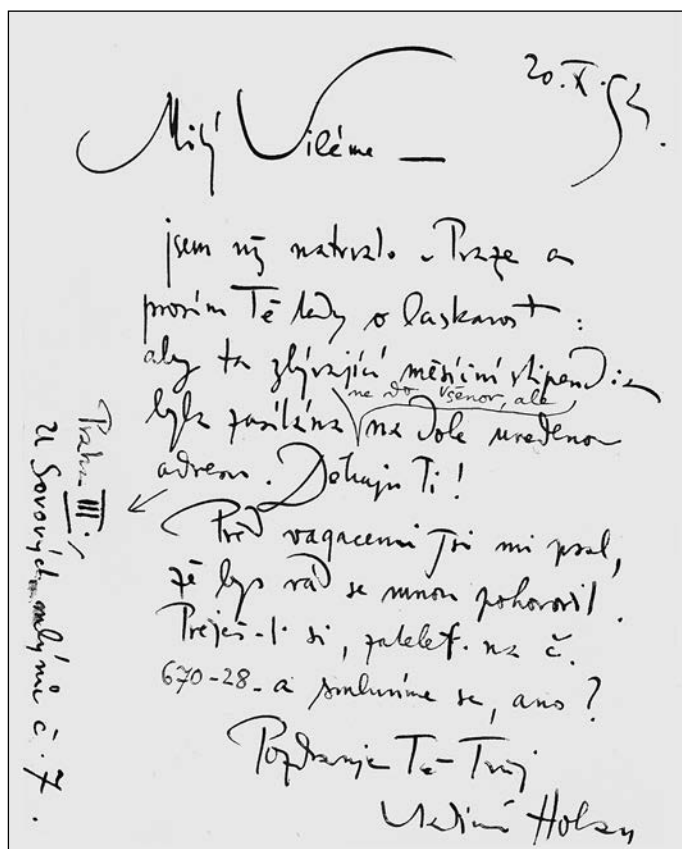 20.X.52.
Milý Viléme —
jsem už natrvalo v Praze a
prosím Tě tedy o laskavost :
aby ta zbývající měsíční stipendia
ne do Všenor, ale
byla zasílána na dole uvedenou
adresu. Děkuju Ti!
Před vagacemi jsi mi psal,
že bys rád se mnou pohovořil.
Přeješ-li si, zatelef. na č.
670-28- a smluvíme se, ano?
Pozdravuje Tě Tvůj
Vladimír Holan
Praha III.,
U Sovových mlýnů č. 7.